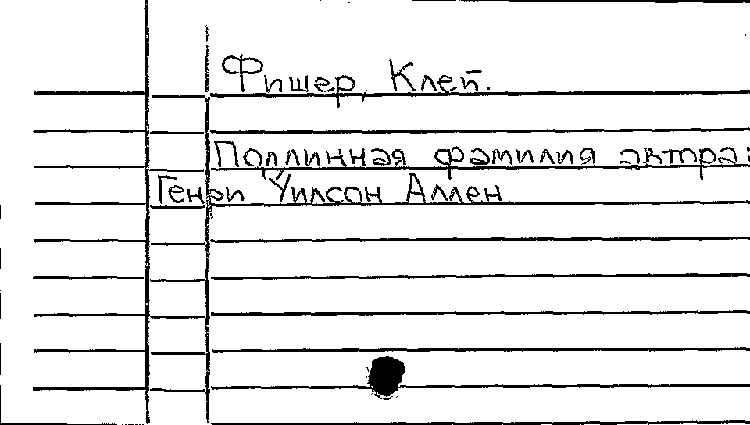 Фишер, Клей.
Подлинная фамилия автора:
Генри Уилсон Аллен